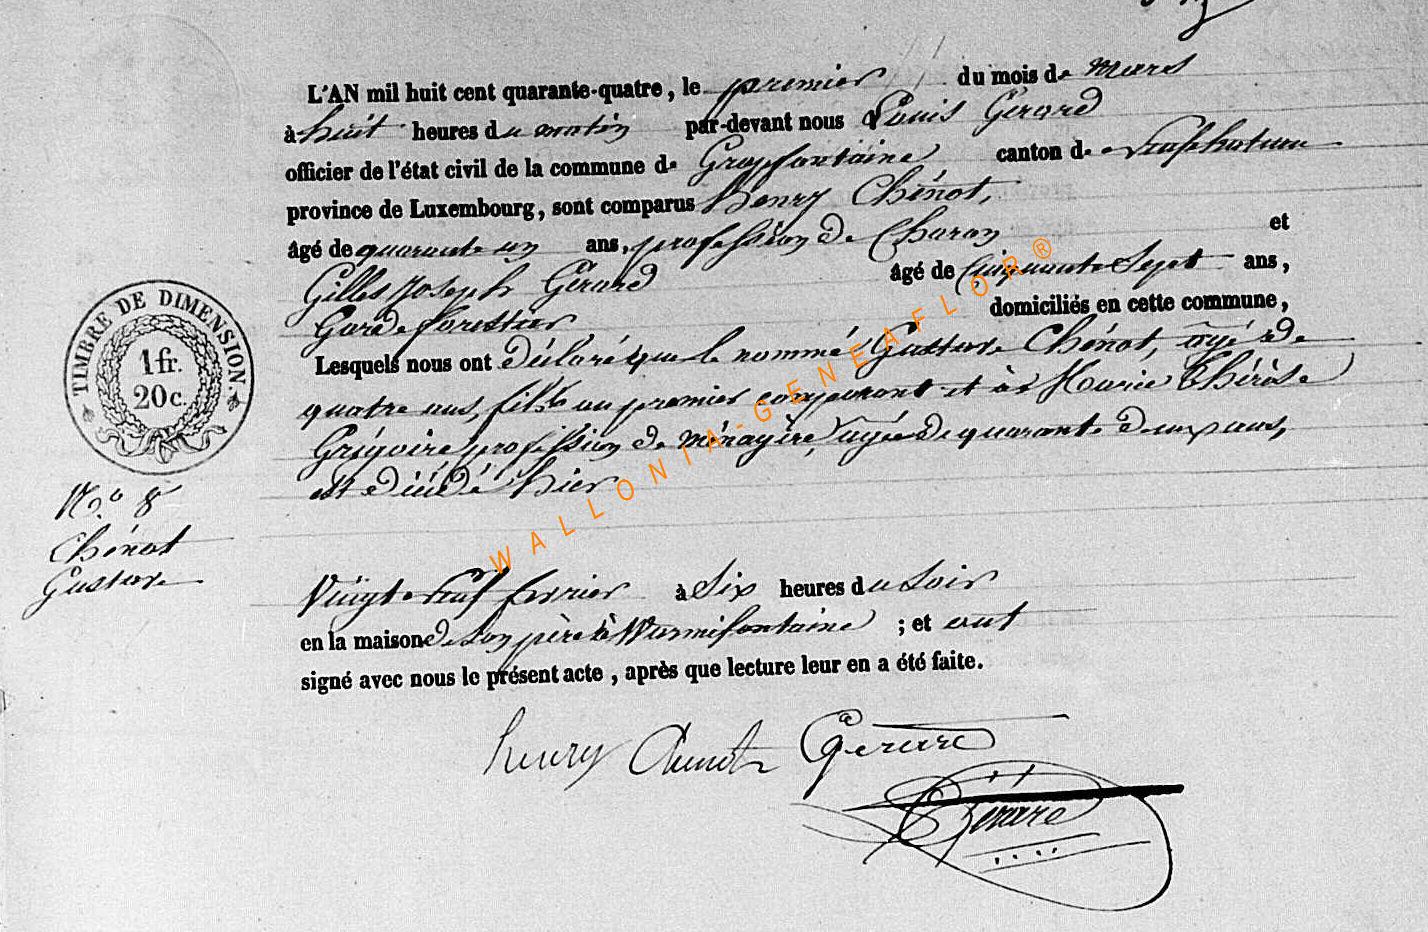 L'AN mil huit cent quarante-quatre, le premier du mois de mars
à huit heures du matin par-devant nous Louis Gérard
officier de l'état civil de la commune de Grapfontaine canton de Neufchateau
province de Luxembourg, sont comparus Henry Chénot,
âgé de quarante un ans, profession de Charon et
Gilles Joseph Gérard âgé de Cinquante Sept ans,
Garde forestier domiciliés en cette commune,
Lesquels nous ont déclaré que le nommé Gustave Chénot, âgé de
quatre ans, fils du premier comparant et de Marie Thérèse
Grégoire profession de ménagère, âgée de quarante deux ans,
est décédé hier
Vingt neuf fevrier à Six heures du Soir
en la maison de Son père à Warmifontaine ; et ont
signé avec nous le présent acte, après que lecture leur en a été faite.
henry Chenot Gérard
Gérard
TIMBRE DE DIMENSION.
1 fr.
20 c.
N.° 8
Chénot
Gustave
WALLONIA-GENEAFLOR®